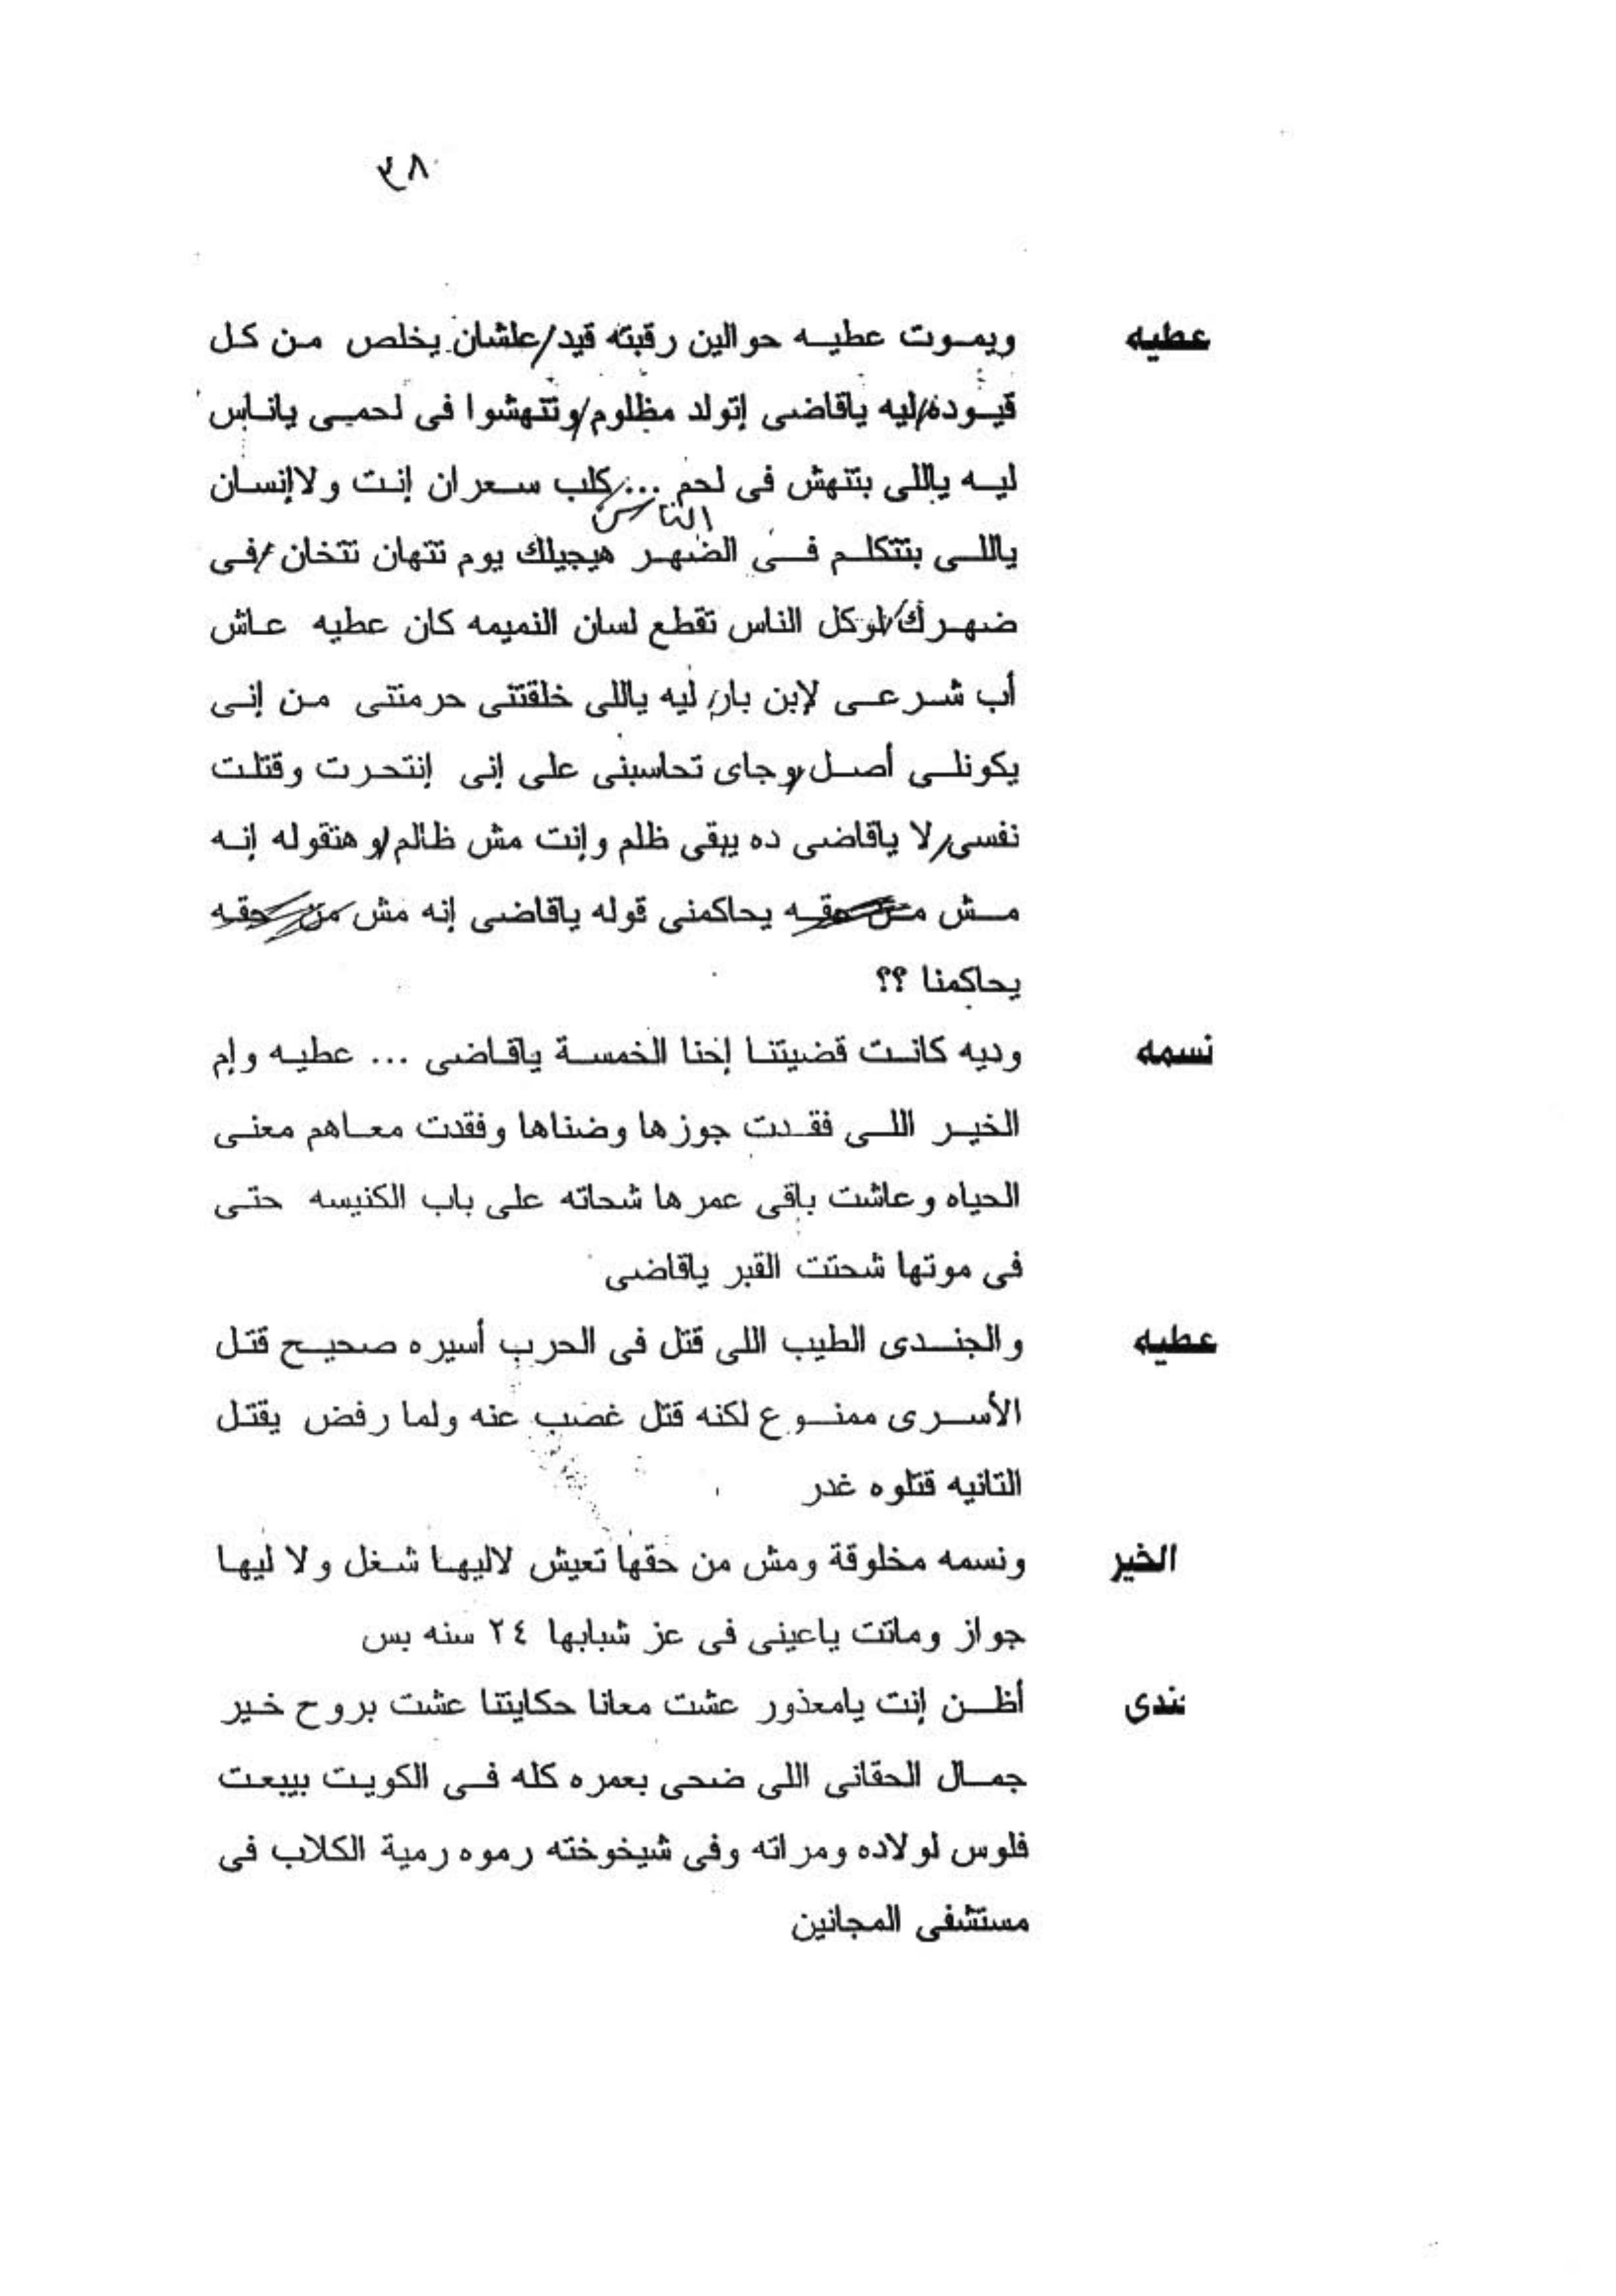 ٣٨
عطيه ويموت عطيه حوالين رقبته قيد/علشان يخلص من كل
قيوده/ليه ياقاضى إتولد مظلوم/وتتهشوا فى لحمى ياناس
ليه ياللى بتنهش فى لحم .../كلب سعران إنت ولاإنسان
الناس
ياللى بتتكلم فى الضهر هيجيلك يوم تتهان تتخان/فى
ضهرك/لوكل الناس تقطع لسان النميمه كان عطيه عاش
أب شرعى لإبن بار/ ليه ياللى خلقتنى حرمتنى من إنى
يكونلى أصل/وجاى تحاسبنى على إنى إنتحرت وقتلت
نفسى/لا ياقاضى ده يبقى ظلم وإنت مش ظالم/وهتقوله إنه
مش من حقه يحاكمنى قوله ياقاضى إنه مش من حقه
يحاكمنا ؟؟
نسمه وديه كانت قضيتنا إحنا الخمسة ياقاضى ... عطيه وإم
الخير اللى فقدت جوزها وضناها وفقدت معاهم معنى
الحياه وعاشت باقى عمرها شحاته على باب الكنيسه حتى
فى موتها شحتت القبر ياقاضى
عطيه والجندى الطيب اللى قتل فى الحرب أسيره صحيح قتل
الأسرى ممنوع لكنه قتل غصب عنه ولما رفض يقتل
التانيه قتلوه غدر
الخير ونسمه مخلوقة ومش من حقها تعيش لاليها شغل ولا ليها
جواز وماتت ياعينى فى عز شبابها ٢٤ سنه بس
ندى أظن إنت يامعذور عشت معانا حكايتنا عشت بروح خير
جمال الحقانى اللى ضحى بعمره كله فى الكويت بيبعت
فلوس لولاده ومراته وفى شيخوخته رموه رمية الكلاب فى
مستشفى المجانين